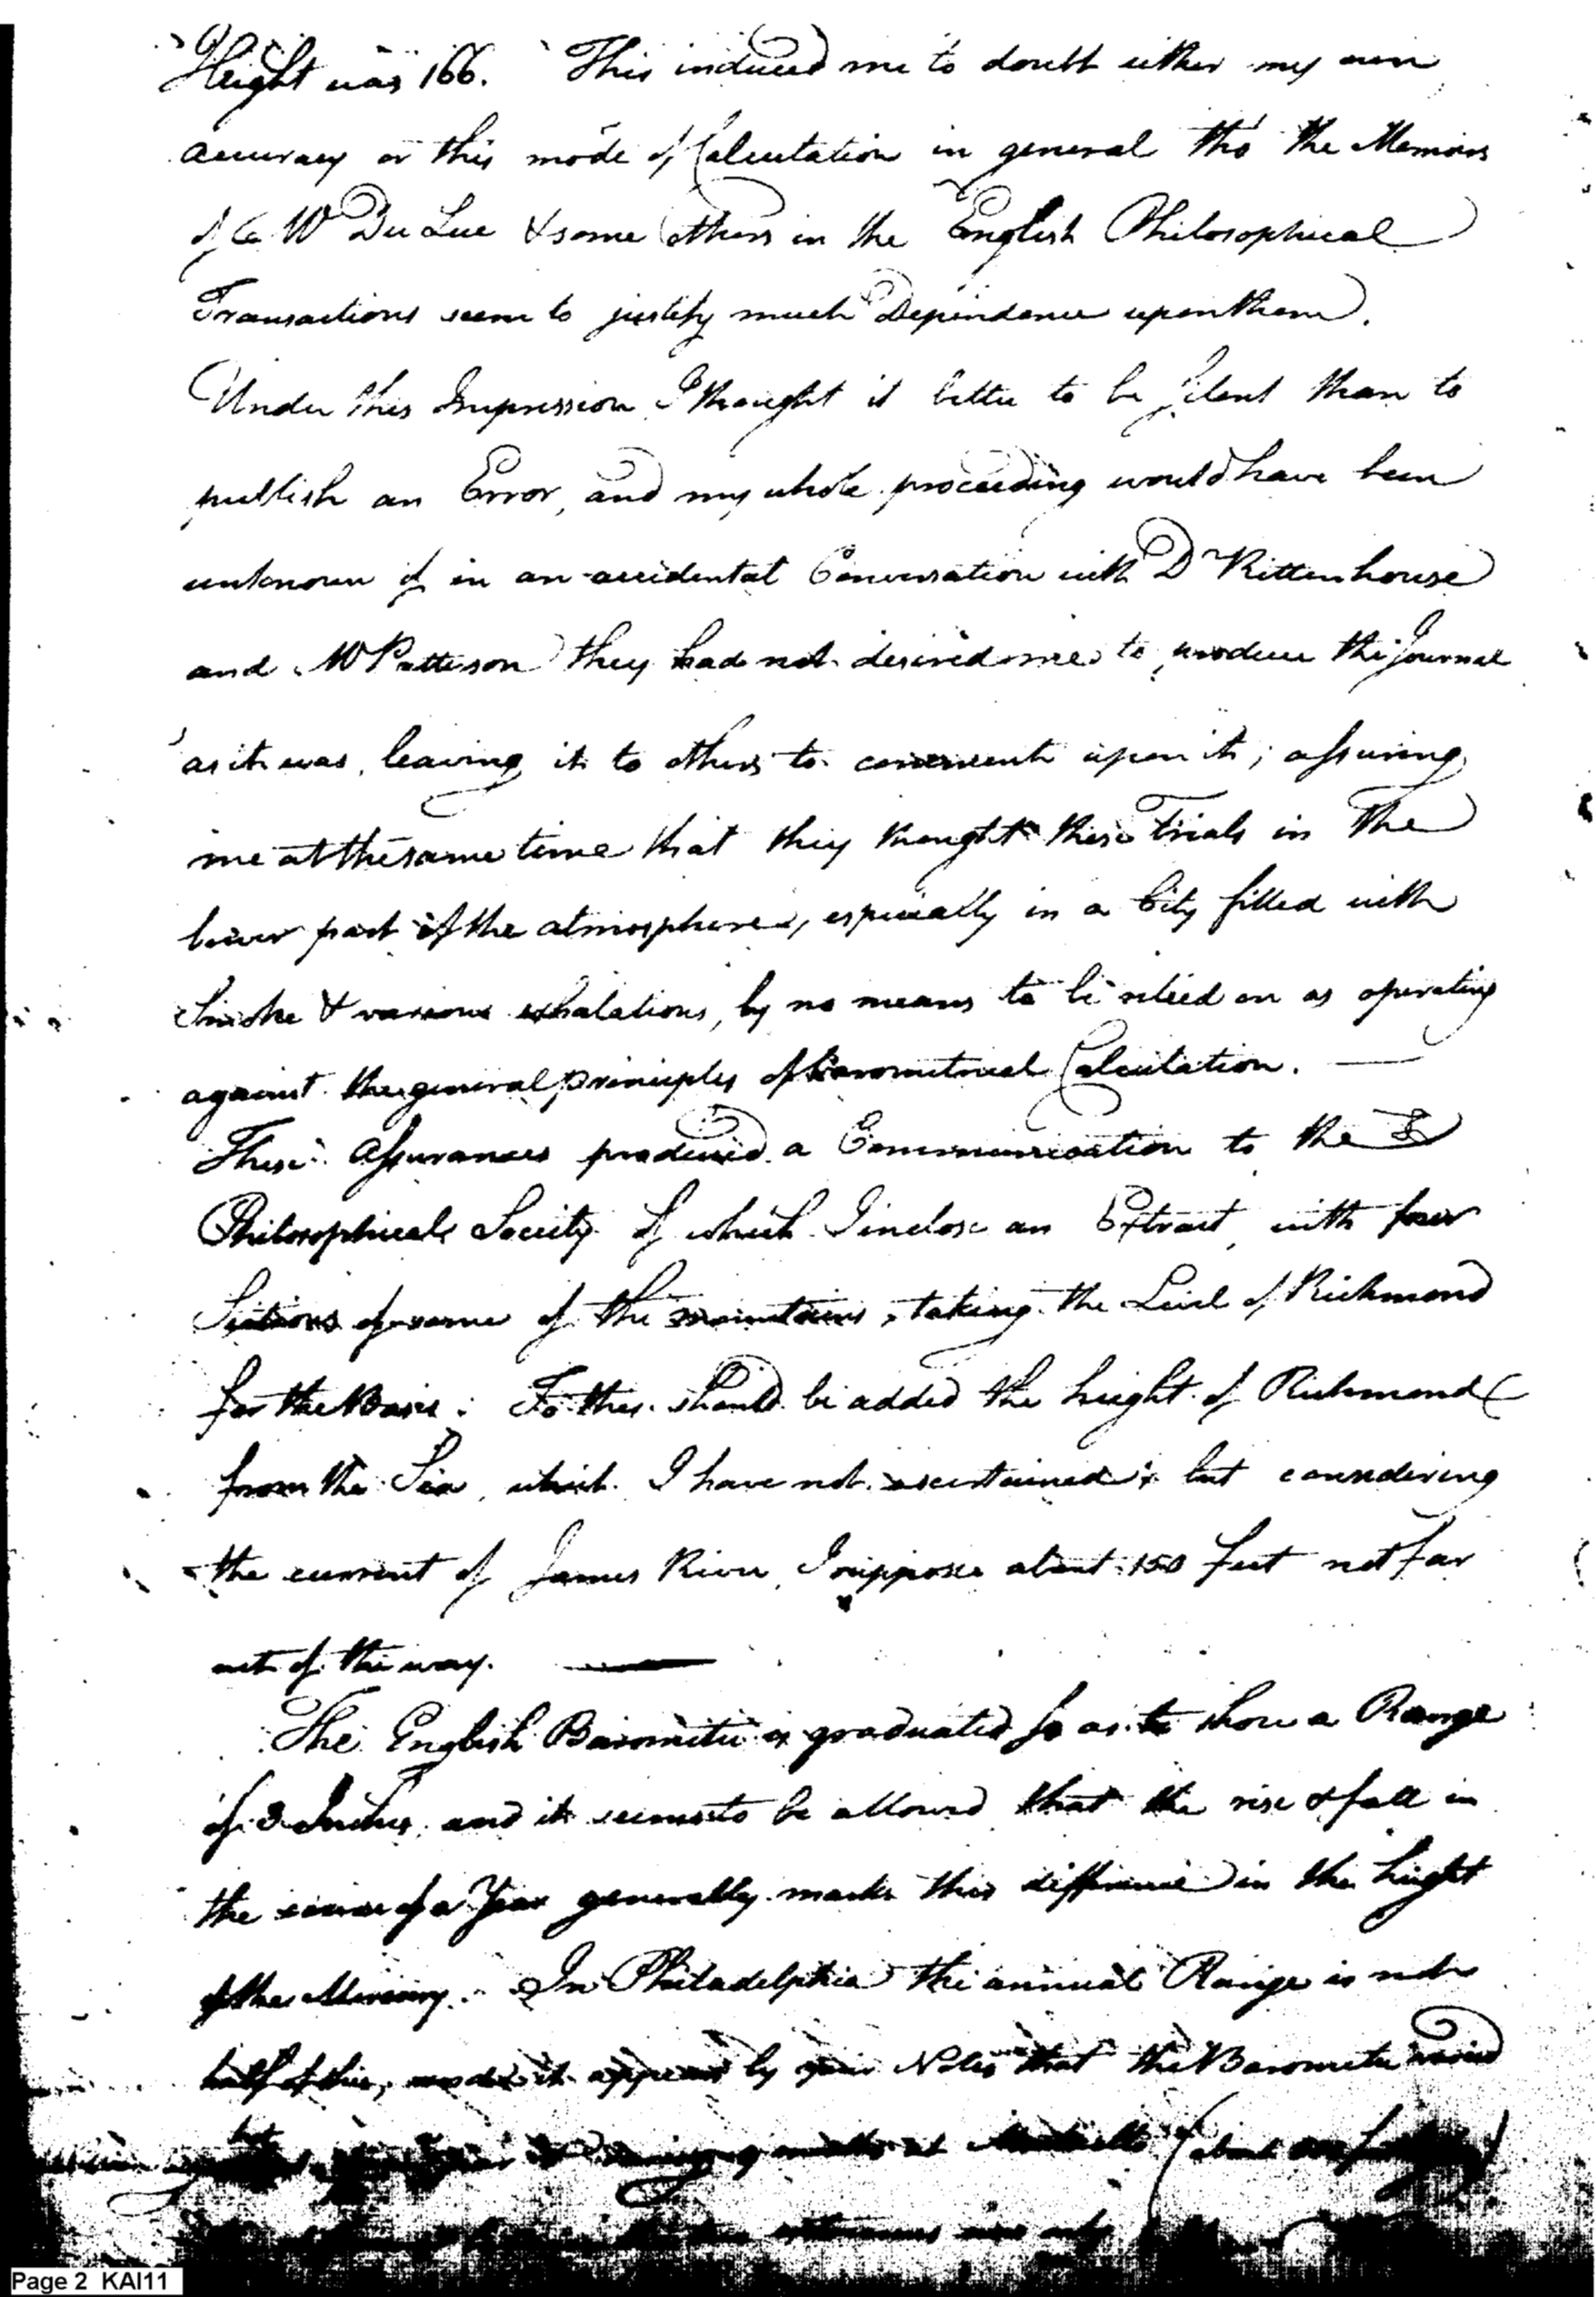 Height was 166. This induced me to doubt either my own
accuracy or this mode of Calculation in general tho' the Memoirs
of Mr De Luc & some others in the English Philosophical
Transactions seem to justify much Dependence upon them.
Under this Impression I thought it better to be silent than to
publish an Error, and my whole proceeding would have been
unknown if in an accidental Conversation with Dr Rittenhouse
and Mr Patterson they had not desired me to produce the Journal
as it was, leaving it to others to comment upon it; assuring
me at the same time that they thought these Trials in the
lower part of the atmosphere, especially in a City filled with
Smoke & various exhalations, by no means to be relied on as operating
against the general principles of Barometrical Calculation. —
These Assurances produced a Communication to the
Philosophical Society of which I inclose an Extract, with four
Sections of some of the mountains, taking the Level of Richmond
for the Basis: To this should be added the height of Richmond
from the Sea, which I have not ascertained; but considering
the current of James River, I suppose about 150 feet not far
out of the way. —
The English Barometer is graduated so as to show a Range
of 3 Inches, and it seems to be allowed that the rise & fall in
the course of a Year generally marks this difference in the height
of the Mercury. In Philadelphia the annual Range is not
half of this, and it appears by your Notes that the Barometer varied
but at Monticello (about